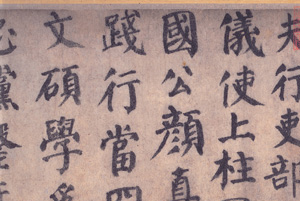 夫行吏部
儀使上柱
國公顏真
踐行當四
文碩學為